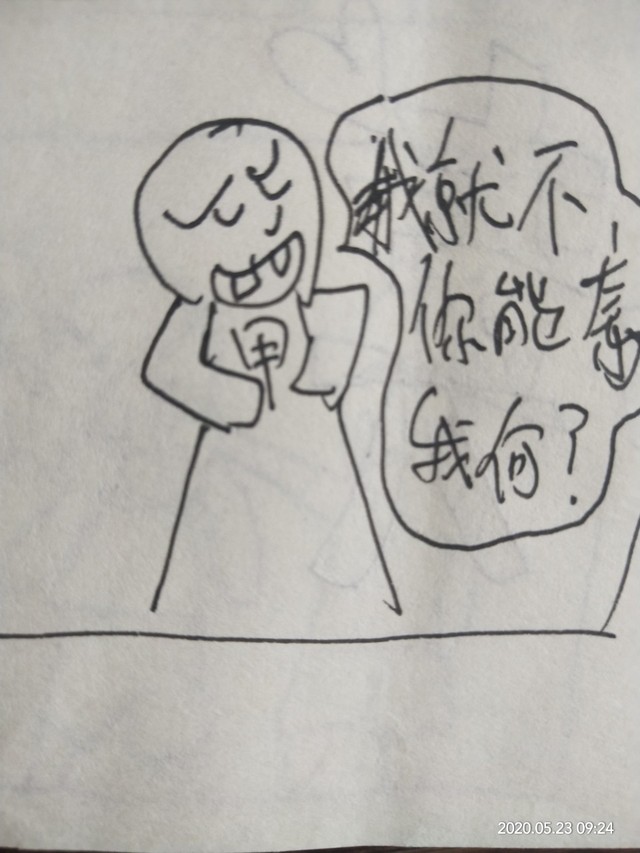 甲
我就不
你能奈
我何?
2020.05.23 09:24